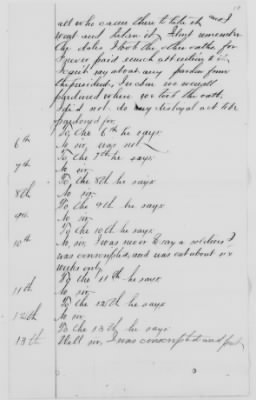 all who came there to take it, and I
went and taken it. I dont remember
the dates I took the other oaths for
I never paid much attention to it.
I cant say about any pardon from
the President, I reckon we were all
pardoned where we took the oath.
I did not do any disloyal act to be
pardoned for.
To the 6th he says
6th No sir, was not
To the 7th he says
7th No sir.
To the 8th he says
8th No sir.
To the 9th he says
9th No sir.
To the 10th he says
10th No, sir, I was never to say a soldier I
was conscripted, and was out about six
weeks only.
To the 11th he says
11th No sir.
To the 12th he says
12th No sir.
To the 13th he says
13th Well sir, I was conscripted and put